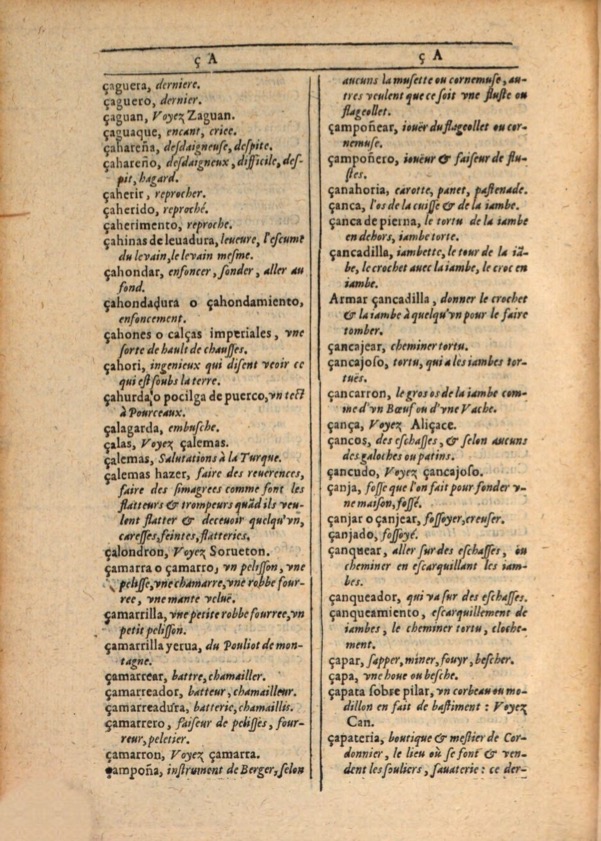 ç A
çaguera, derniere.
çaguero, dernier.
çaguan, Voyez Zaguan.
çaguaque, encant, criee.
çahareña, desdaigneuse, despite.
çahareño, desdaigneux, difficile, des-
pit, hagard.
çaherir, reprocher.
çaherido, reproché.
çaherimento, reproche.
çahinas de leuadura, leueure, l'escume
du levain, le levain mesme.
çahondar, enfoncer, fonder, aller au
fond.
çahondadura o çahondamiento,
enfoncement.
çahones o calças imperiales, vne
sorte de hault de chausses.
çahori, ingenieux qui disent veoir ce
qui est soubs la terre.
çahurda o pocilga de puerco, vn tect
à Pourceaux.
çalagarda, embusche.
çalas, Voyez çalemas.
çalemas, Salutations à la Turque.
çalemas hazer, faire des reuerences,
faire des simagrees comme font les
flatteurs & trompeurs quãd ils veu-
lent flatter & deceuoir quelqu'vn,
caresses, feintes, flatteries.
çalondron, Voyez Sorueton.
çamarra o çamarro, vn pelisson, vne
pelisse, vne chamarre, vne robbe four-
ree, vne mante veluë.
çamarrilla, vne petite robbe fourree, vn
petit pelisson.
çamarrilla yerua, du Pouliot de mon-
tagne.
çamarrear, battre, chamailler.
çamarreador, batteur, chamailleur.
çamarreadura, batterie, chamaillis.
çamarrero, faiseur de pelisses, four-
reur, peletier.
çamarron, Voyez çamarra.
çampoña, instrument de Berger, selon
ç A
aucuns la musette ou cornemuse, au-
tres veulent que ce soit vne fluste ou
flageollet.
çampoñear, ioüer du flageollet ou cor-
nemuse.
çampoñero, ioueur & faiseur de flu-
stes.
çanahoria, carotte, panet, pastenade.
çanca, l'os de la cuisse & de la iambe.
çanca de pierna, le tortu de la iambe
en dehors, iambe torte.
çancadilla, iambette, le tour de la iã-
be, le crochet auec la iambe, le croc en
iambe.
Armar çancadilla, donner le crochet
& la iambe à quelqu'vn pour le faire
tomber.
çancajear, cheminer tortu.
çancajoso, tortu, qui a les iambes tor-
tues.
çancarron, le gros os de la iambe com-
me d'vn Bœuf ou d'vne Vache.
çança, Voyez Aliçace.
çancos, des eschasses, & selon aucuns
des galoches ou patins.
çancudo, Voyez çancajoso.
çanja, fosse que l'on fait pour fonder v-
ne maison, fossé.
çanjar o çanjear, fossoyer, creuser.
çanjado, fossoyé.
çanquear, aller sur des eschasses, ou
cheminer en escarquillant les iam-
bes.
çanqueador, qui va sur des eschasses.
çanqueamiento, escarquillement de
iambes, le cheminer tortu, cloche-
ment.
çapar, sapper, miner, fouyr, bescher.
çapa, vne houe ou besche.
çapata sobre pilar, vn corbeau ou mo-
dillon en fait de bastiment : Voyez
Can.
çapateria, boutique & mestier de Cor-
donnier, le lieu où se font & ven-
dent les souliers, sauaterie : ce der-